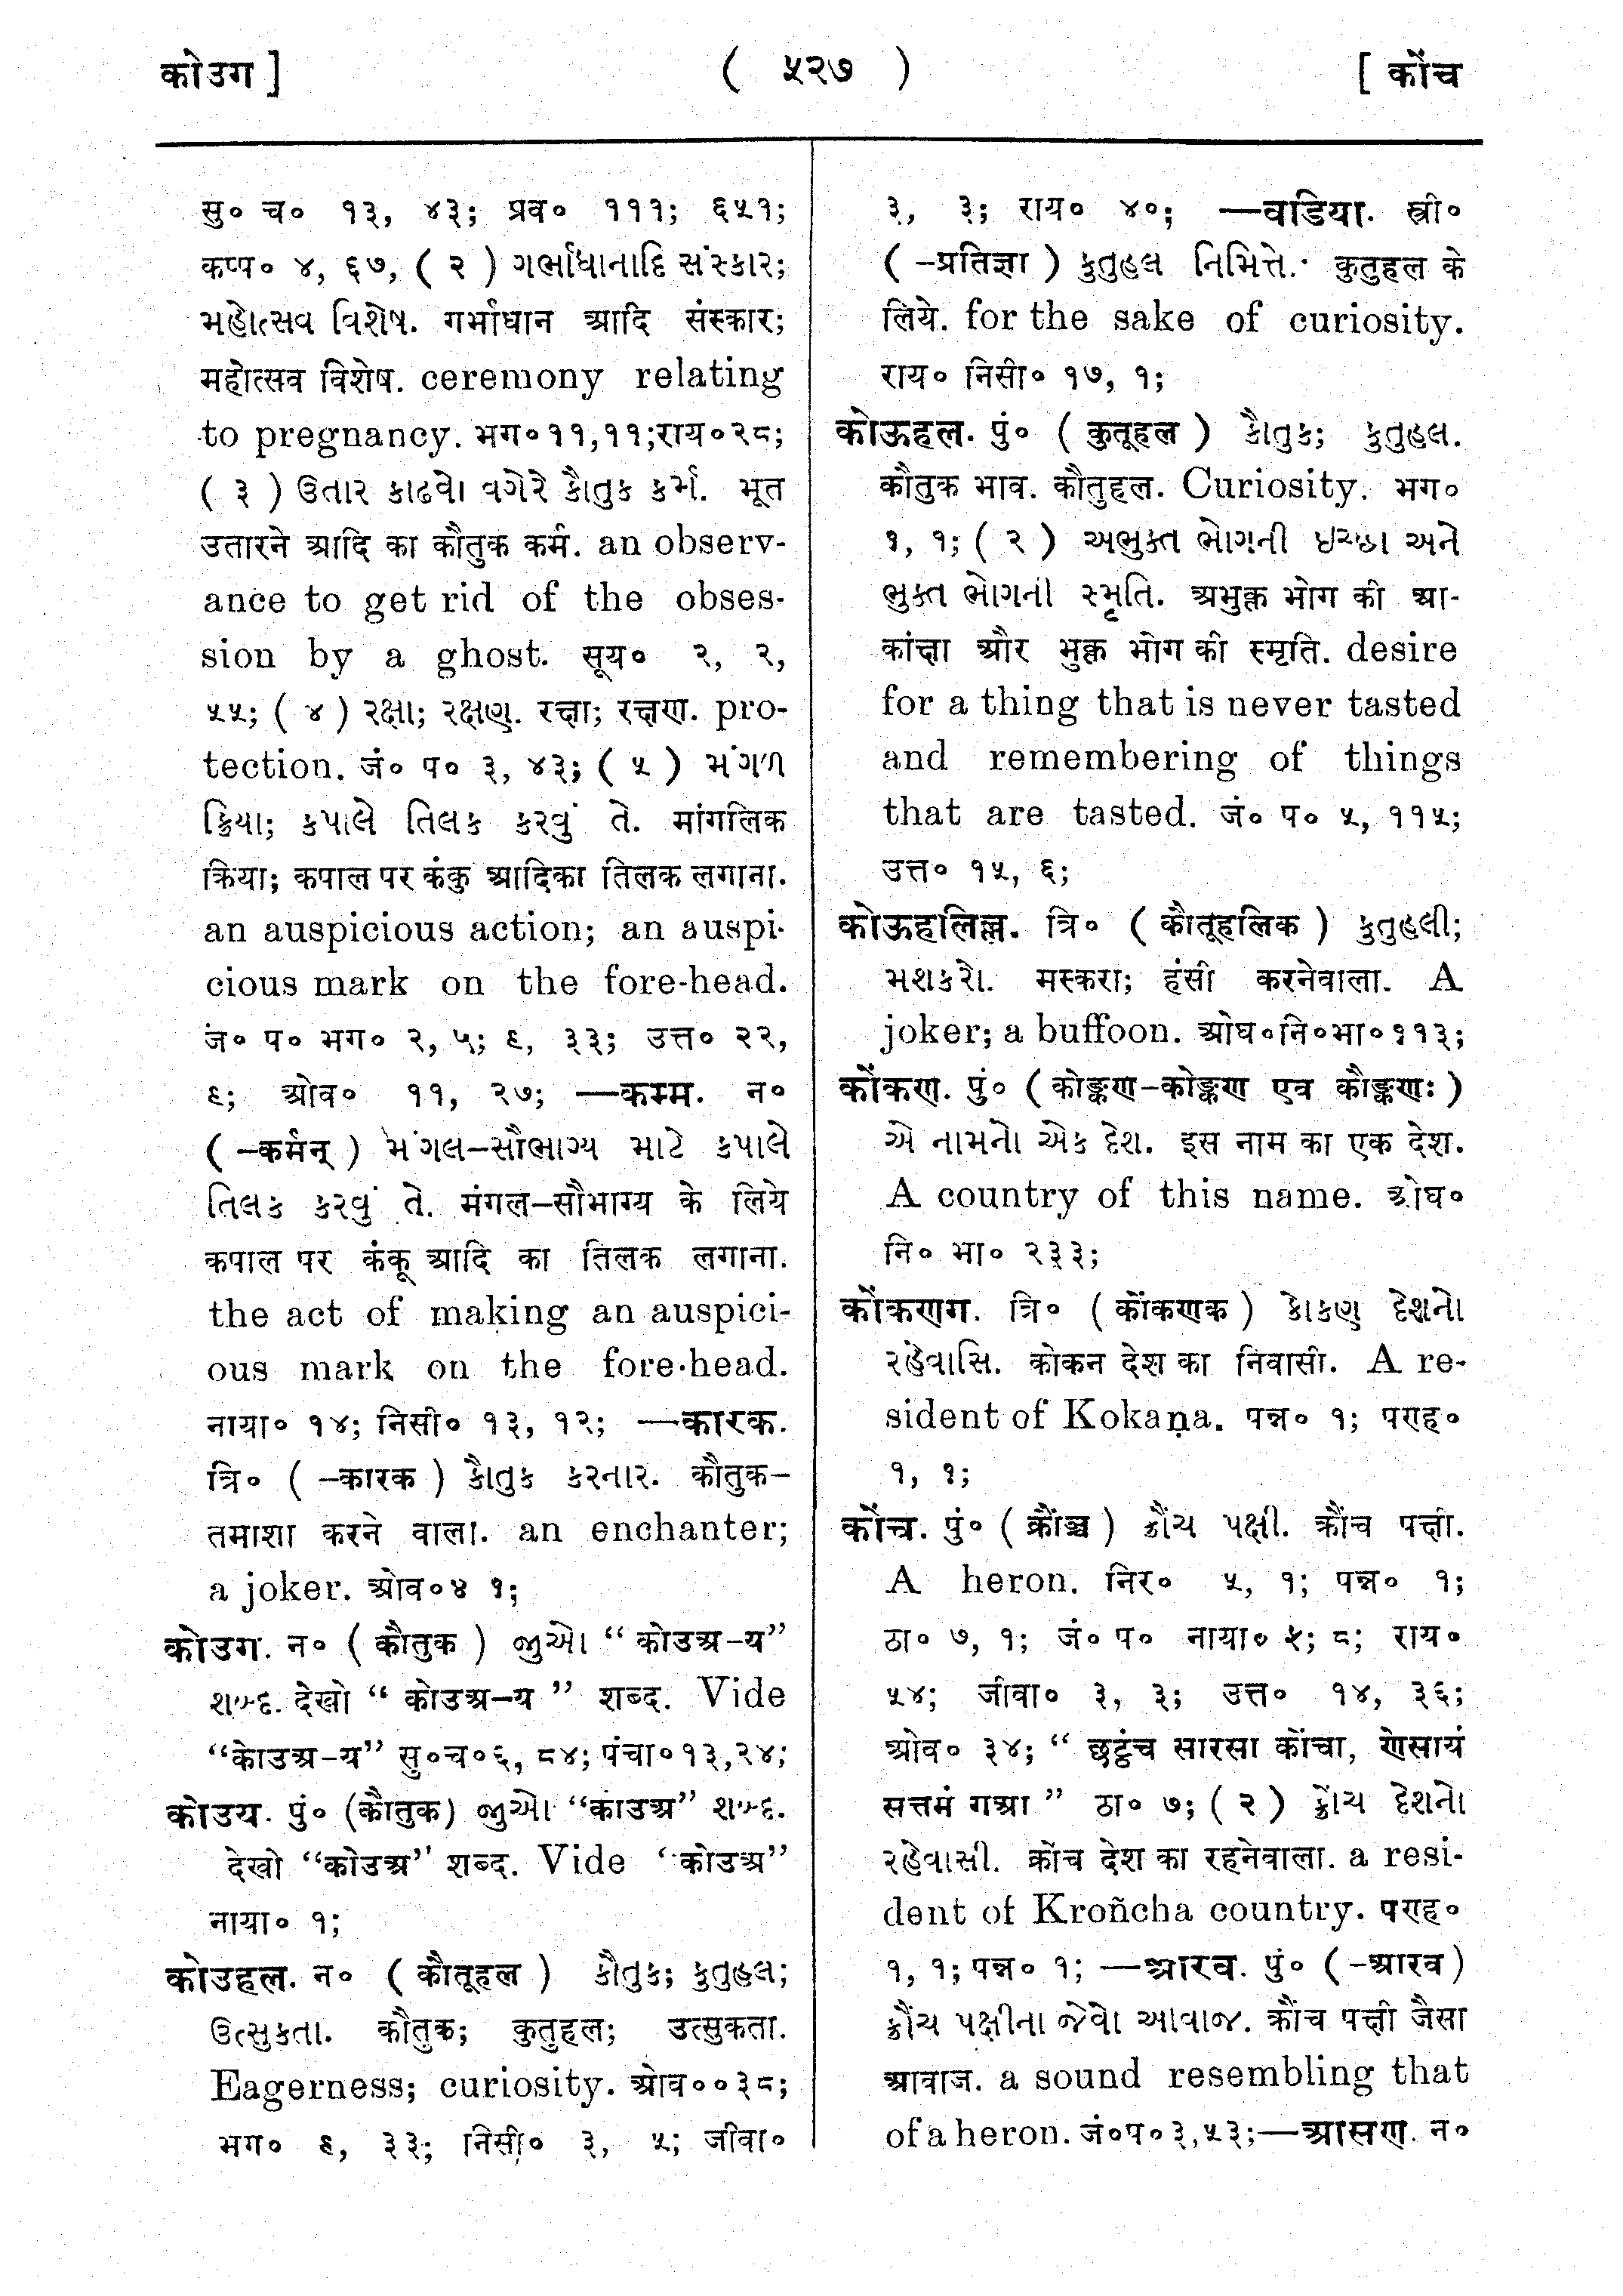 कोउग ]
( ५२७ )
[ कोंच
सु० च० १३, ४३; प्रव० १११; ६५१;
कप्प० ४, ६७, ( २ ) ગર્ભાધાનાદિ સંસ્કાર;
મહોત્સવ વિશેષ. गर्भाधान आदि संस्कार;
महोत्सव विशेष. ceremony relating
to pregnancy. भग०११,११;राय०२८;
( ३ ) ઉતાર કાઢવો વગેરે કૌતુક કર્મ. भूत
उतारने आदि का कौतुक कर्म. an observ-
ance to get rid of the obses-
sion by a ghost. सूय० २, २,
५५; ( ४ ) રક્ષા; રક્ષણ. रक्षा; रक्षण. pro-
tection. जं० प० ३, ४३; ( ५ ) મંગળ
ક્રિયા; કપાલે તિલક કરવું તે. मांगलिक
क्रिया; कपाल पर कंकु आदिका तिलक लगाना.
an auspicious action; an auspi-
cious mark on the fore-head.
जं० प० भग० २, ५; ६, ३३; उत्त० २२,
६; ओव० ११, २७; —कम्म. न०
( -कर्मन् ) મંગલ–સૌભાગ્ય માટે કપાલે
તિલક કરવું તે. मंगल–सौभाग्य के लिये
कपाल पर कंकू आदि का तिलक लगाना.
the act of making an auspici-
ous mark on the fore-head.
नाया० १४; निसी० १३, १२; —कारक.
त्रि० ( -कारक ) કૌતુક કરનાર. कौतुक–
तमाशा करने वाला. an enchanter;
a joker. ओव०४ १;
कोउग. न० ( कौतुक ) જુઓ “ कोउअ-य”
શબ્દ. देखो “ कोउअ-य ” शब्द. Vide
“कोउअ-य” सु०च०६, ८४; पंचा०१३,२४;
कोउय. पुं० (कौतुक) જુઓ “कोउअ” શબ્દ.
देखो “कोउअ” शब्द. Vide “कोउअ”
नाया० १;
कोउहल. न० ( कौतूहल ) કૌતુક; કુતુહલ;
ઉત્સુકતા. कौतुक; कुतुहल; उत्सुकता.
Eagerness; curiosity. ओव००३८;
भग० ६, ३३; निसी० ३, ५; जीवा०
३, ३; राय० ४०; —वडिया. स्त्री०
( -प्रतिज्ञा ) કુતુહલ નિમિત્તે. कुतुहल के
लिये. for the sake of curiosity.
राय० निसी० १७, १;
कोऊहल. पुं० ( कुतूहल ) કૌતુક; કુતુહલ.
कौतुक भाव. कौतुहल. Curiosity. भग०
१, १; ( २ ) અભુક્ત ભોગની ઇચ્છા અને
ભુક્ત ભોગની સ્મૃતિ. अभुक्त भोग की आ-
कांक्षा और भुक्त भोग की स्मृति. desire
for a thing that is never tasted
and remembering of things
that are tasted. जं० प० ५, ११५;
उत्त० १५, ६;
कोऊहलिल्ल. त्रि० ( कौतूहलिक ) કુતુહલી;
મશકરો. मस्करा; हंसी करनेवाला. A
joker; a buffoon. ओघ०नि०भा०११३;
कोंकण. पुं० ( कोङ्कण-कोङ्कण एव कौङ्कणः )
એ નામનો એક દેશ. इस नाम का एक देश.
A country of this name. ओघ०
नि० भा० २३३;
कोंकणग. त्रि० ( कोंकणक ) કોકણ દેશનો
રહેવાસિ. कोकन देश का निवासी. A re-
sident of Kokaṇa. पन्न० १; पण्ह०
१, १;
कोंच. पुं० ( क्रौञ्च ) ક્રૌંચ પક્ષી. क्रौंच पक्षी.
A heron. निर० ५, १; पन्न० १;
ठा० ७, १; जं० प० नाया० ५; ८; राय०
५४; जीवा० ३, ३; उत्त० १४, ३६;
ओव० ३४; “ छट्ठंच सारसा कोंचा, णेसायं
सत्तमं गआ ” ठा० ७; ( २ ) ક્રોંચ દેશનો
રહેવાસી. क्रोंच देश का रहनेवाला. a resi-
dent of Kroñcha country. पण्ह०
१, १; पन्न० १; —आरव. पुं० ( -आरव )
ક્રૌંચ પક્ષીના જેવો આવાજ. क्रौंच पक्षी जैसा
आवाज. a sound resembling that
of a heron. जं०प०३,५३;—आसण. न०